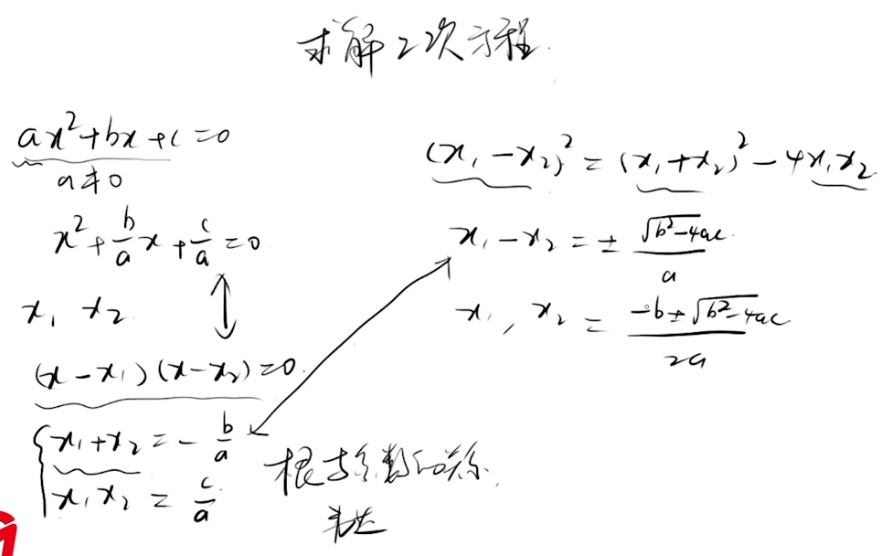 求解2次方程.
ax²+bx+c=0
a≠0
x²+b/a x+c/a=0
x₁ x₂
(x-x₁)(x-x₂)=0.
{x₁+x₂=-b/a
x₁x₂=c/a
根与系数的关系.
表达
(x₁-x₂)²=(x₁+x₂)²-4x₁x₂.
x₁-x₂=±√(b²-4ac)/a
x₁, x₂=(-b±√(b²-4ac))/2a